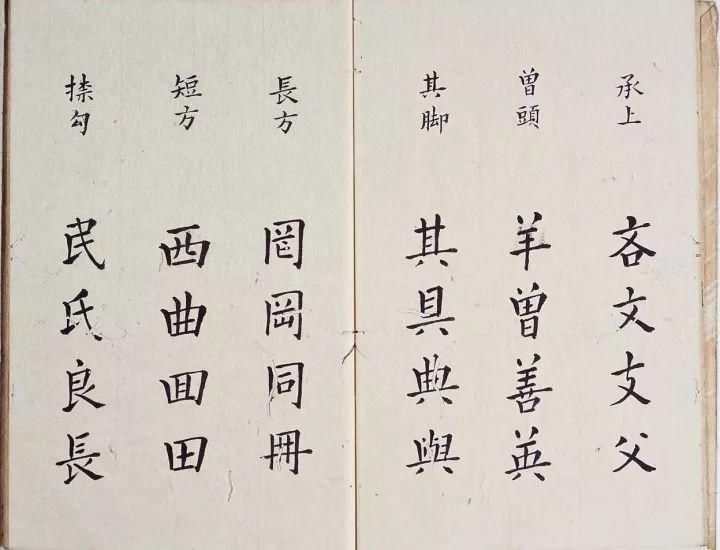 承上
吝文支父
曾頭
羊曾善英
其脚
其具典與
長方
罔岡同冊
短方
西曲囬田
捺勾
民氏良長